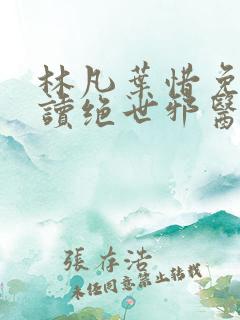 林凡葉惜免
讀绝世邪醫
張存浩
未任同意禁止转载